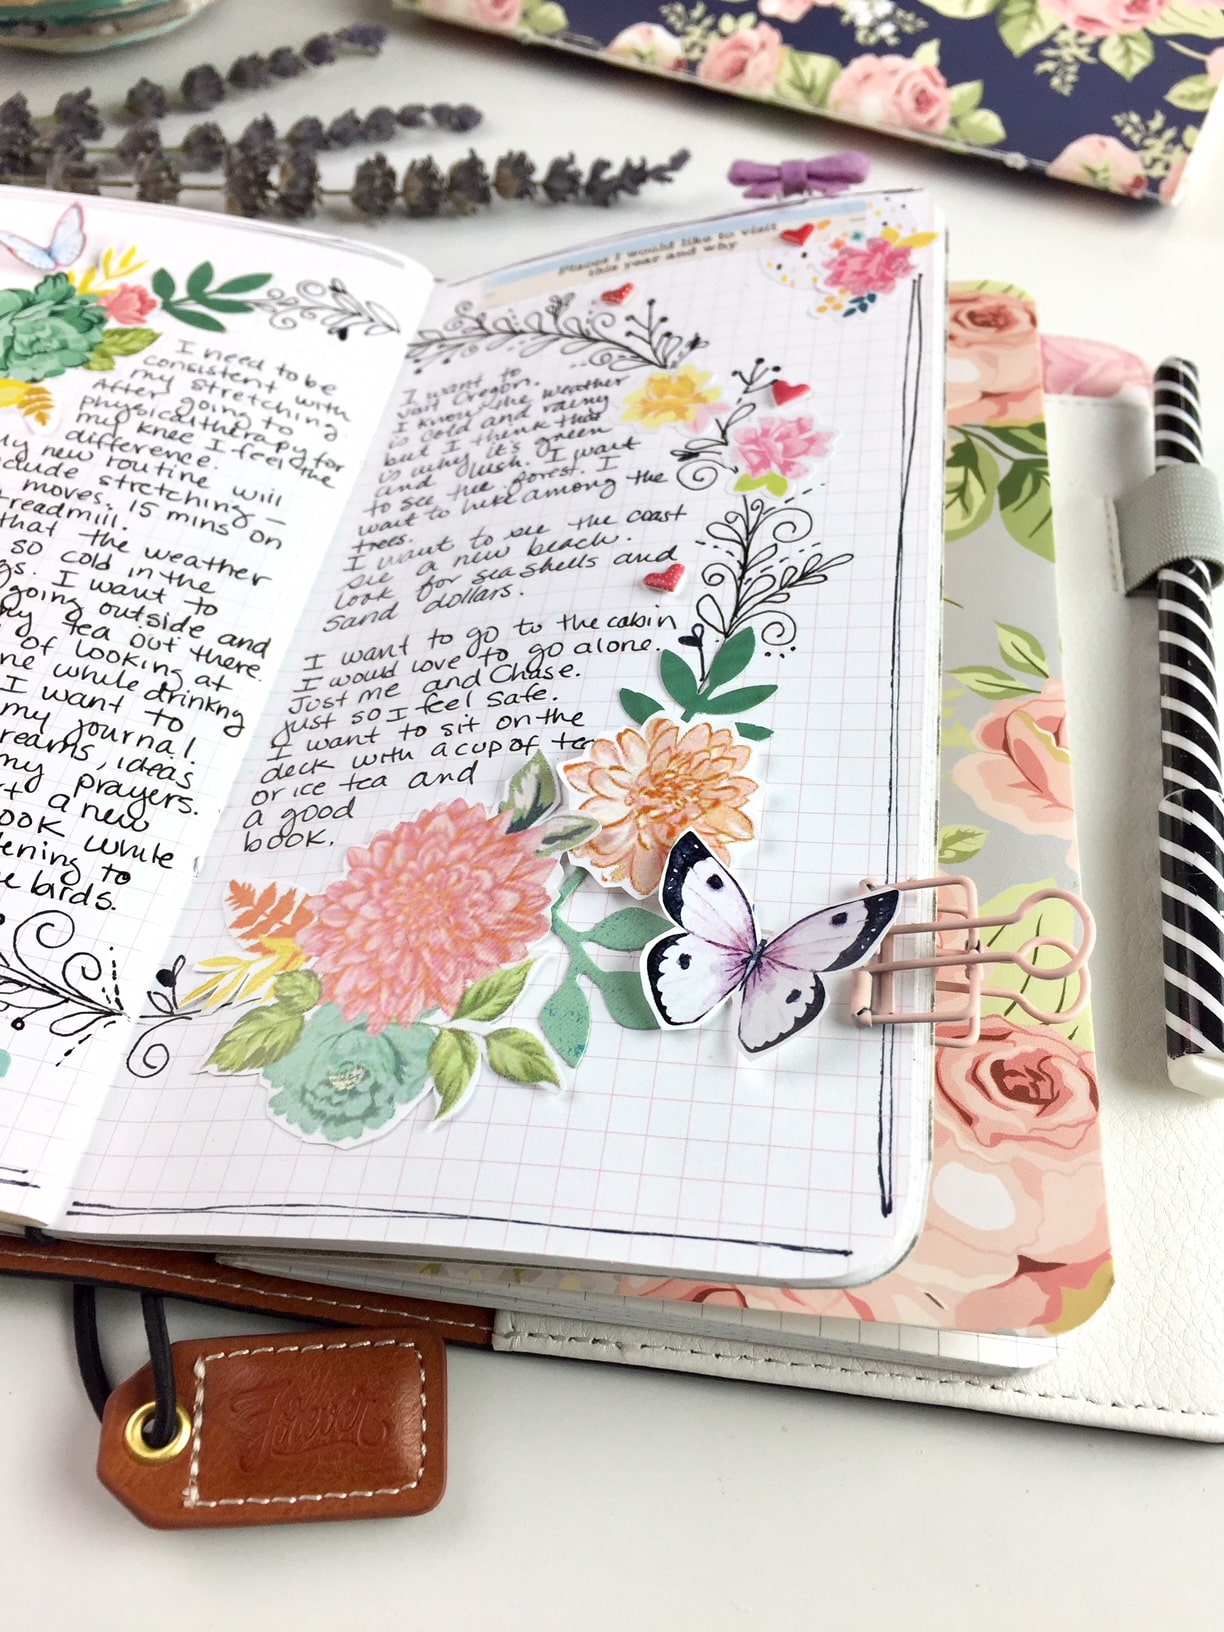 I need to be
consistent with
my stretching.
After going to
physical therapy for
my knee I feel the
difference.
new routine will
stretching –
moves. 15 mins on
treadmill.
that the weather
so cold in the
I want to
going outside and
my tea out there.
of looking at
while drinkng
I want to
my journal.
dreams, ideas
my prayers.
a new
book while
listening to
the birds.
Places I would like to visit
this year and why
I want to
visit Oregon.
I know the weather
is cold and rainy
but I think that
is why it's green
and lush. I want
to see the forest. I
want to hike among the
trees.
I want to see the coast
see a new beach.
look for seashells and
sand dollars.
I want to go to the cabin
I would love to go alone.
Just me and Chase.
just so I feel safe.
I want to sit on the
deck with a cup of tea
or ice tea and
a good
book.
Forever